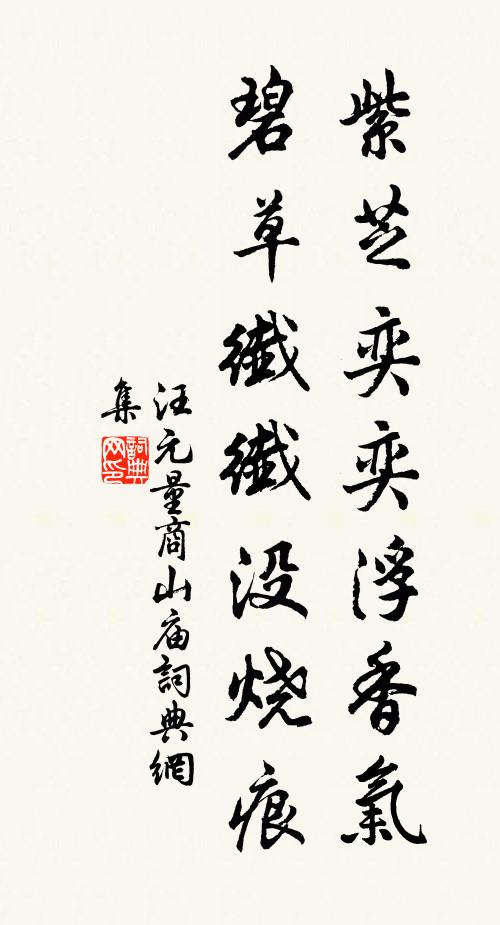 紫芝奕奕浮香氣
碧草纖纖没烧痕
汪元量商山庙詞典網
集
詞典
网印